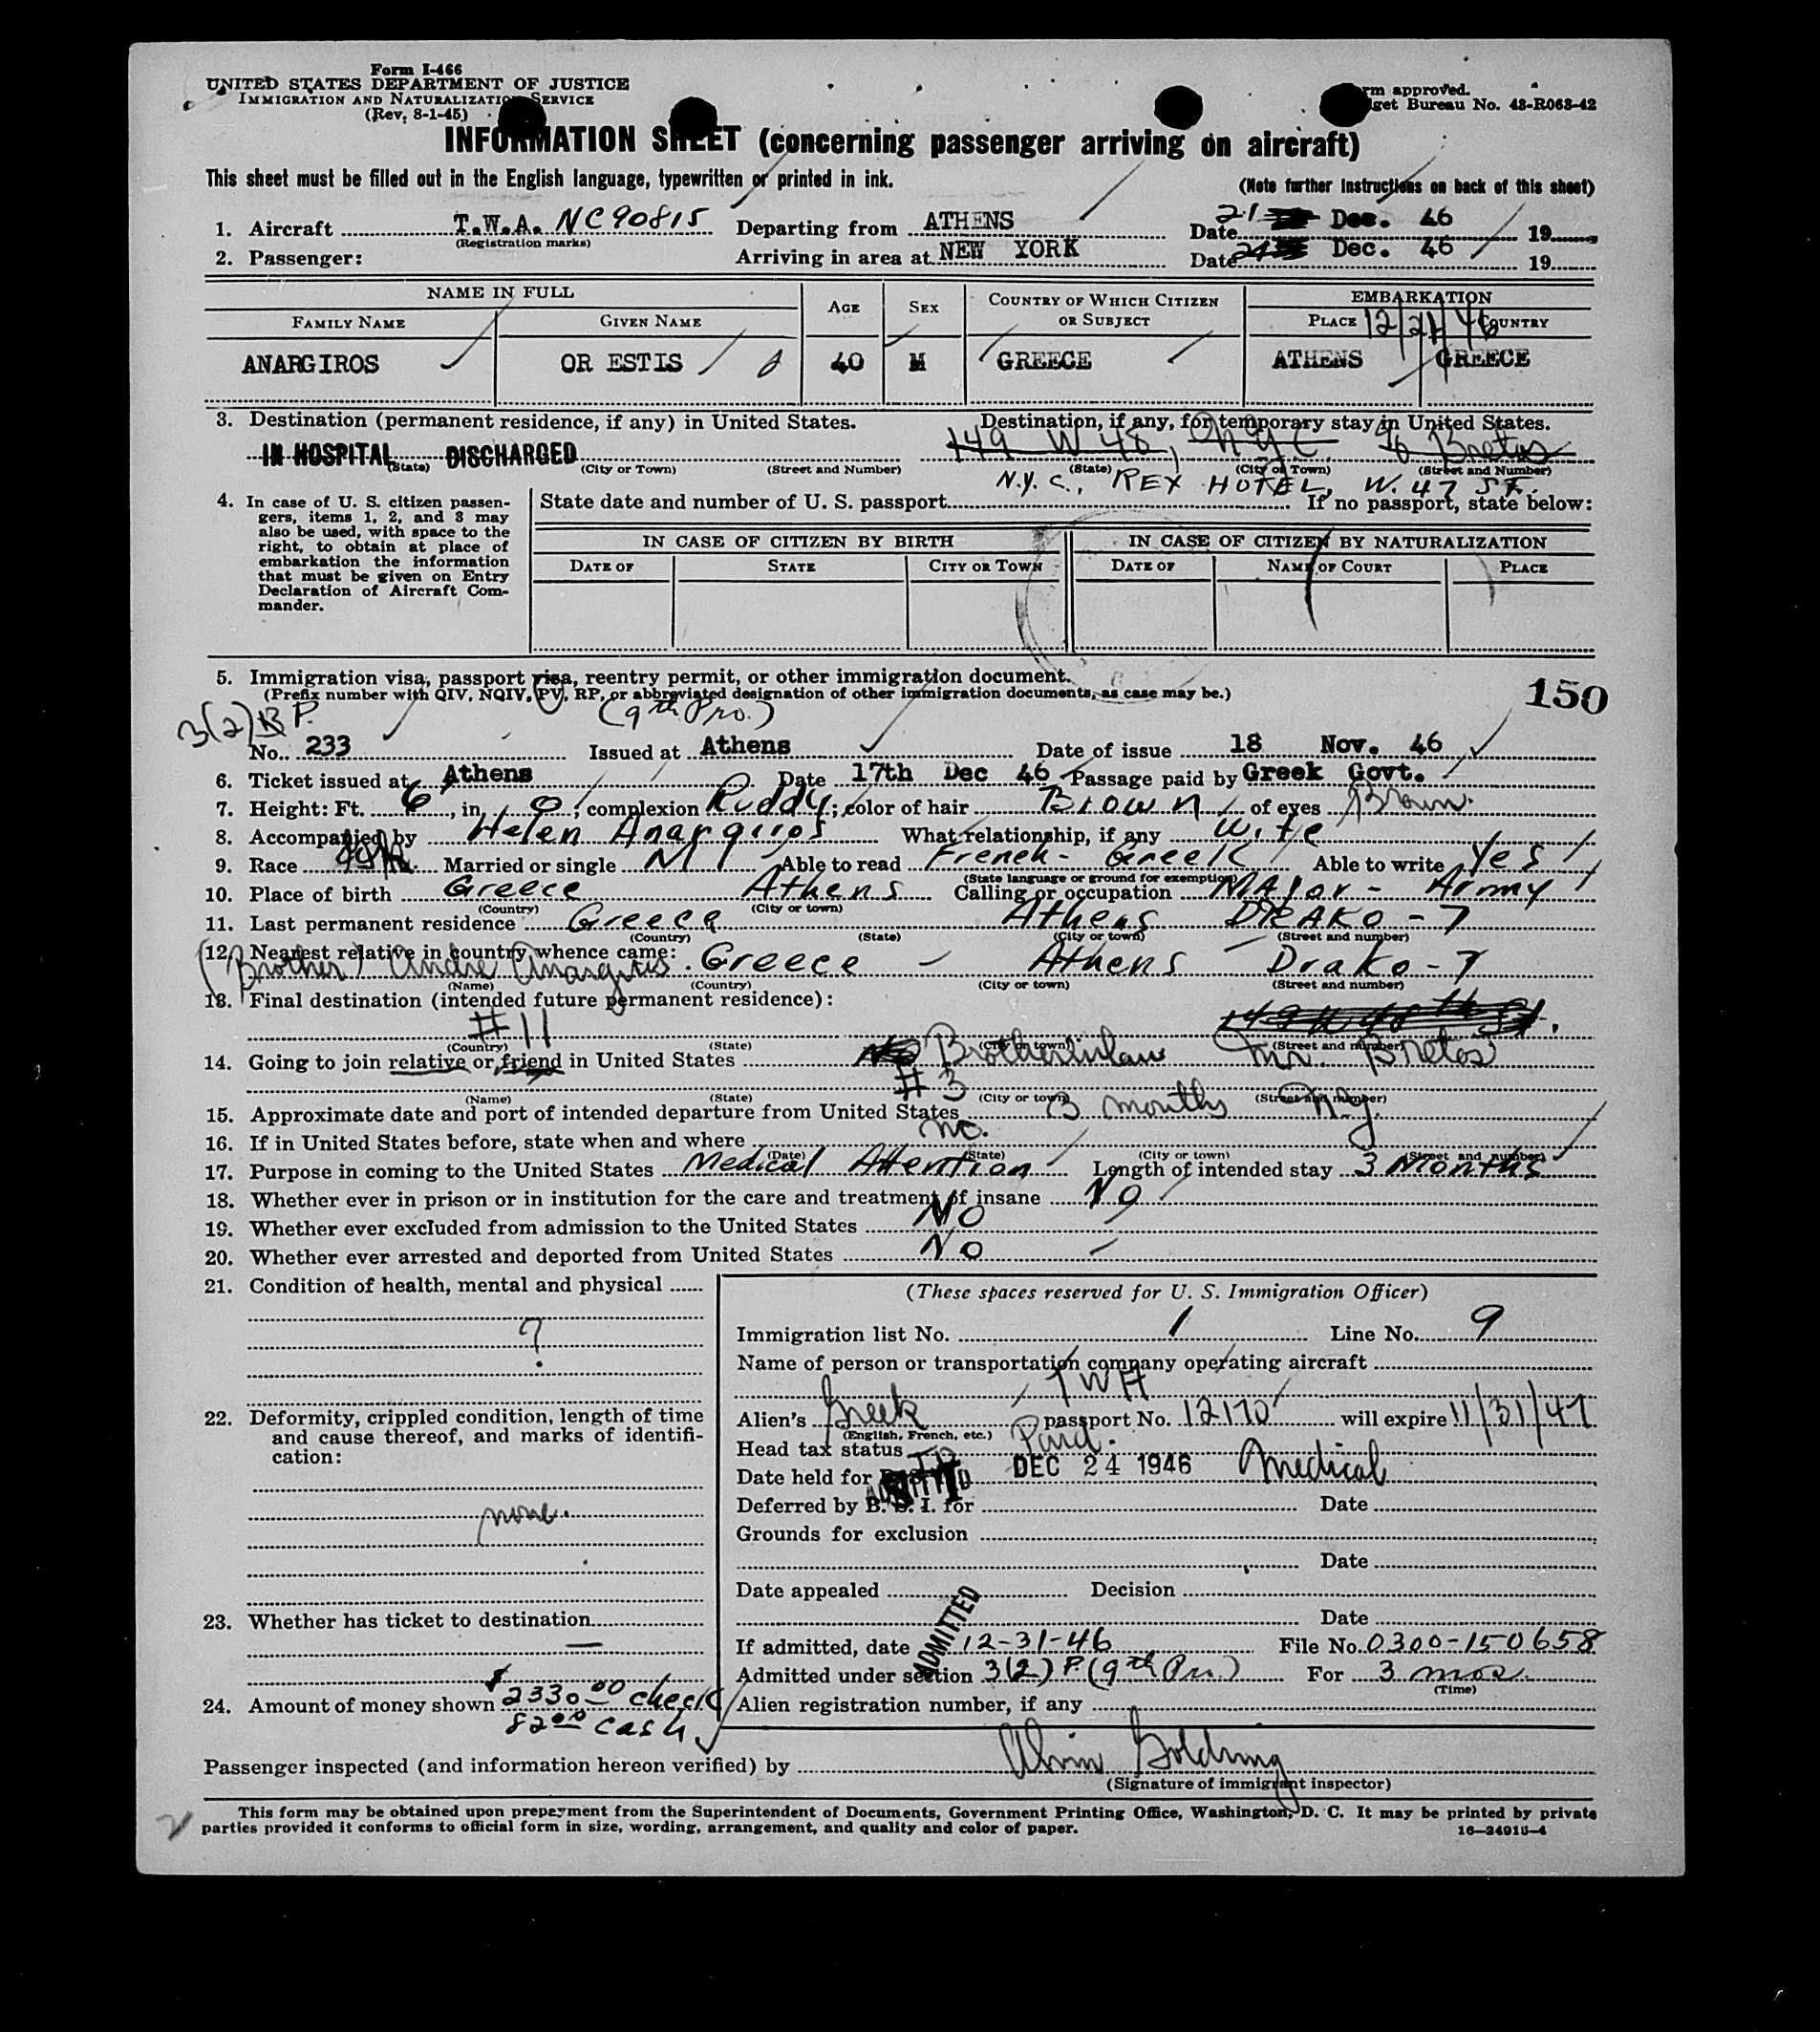 Form I-466
UNITED STATES DEPARTMENT OF JUSTICE
IMMIGRATION AND NATURALIZATION SERVICE
(Rev. 8-1-45)
rm approved.
lget Bureau No. 43-R063-42
INFORMATION SHEET (concerning passenger arriving on aircraft)
This sheet must be filled out in the English language, typewritten or printed in ink.
(Note further instructions on back of this sheet)
1. Aircraft T.W.A. NC90815 Departing from ATHENS Date 21 Dec. 46 19
(Registration marks)
2. Passenger: Arriving in area at NEW YORK Date 24 Dec. 46 19
NAME IN FULL AGE SEX COUNTRY OF WHICH CITIZEN OR SUBJECT EMBARKATION
FAMILY NAME GIVEN NAME PLACE 12/21/46 COUNTRY
ANARGIROS OR ESTIS 40 M GREECE ATHENS GREECE
3. Destination (permanent residence, if any) in United States. Destination, if any, for temporary stay in United States.
IN HOSPITAL DISCHARGED 149 W 48, NYC % Bretos
(State) (City or Town) (Street and Number) (State) (City or Town) (Street and Number)
N.Y.C., REX HOTEL, W. 47 ST.
4. In case of U. S. citizen passen-
gers, items 1, 2, and 3 may
also be used, with space to the
right, to obtain at place of
embarkation the information
that must be given on Entry
Declaration of Aircraft Com-
mander.
State date and number of U. S. passport If no passport, state below:
IN CASE OF CITIZEN BY BIRTH IN CASE OF CITIZEN BY NATURALIZATION
DATE OF STATE CITY OR TOWN DATE OF NAME OF COURT PLACE
5. Immigration visa, passport visa, reentry permit, or other immigration document.
(Prefix number with QIV, NQIV, PV, RP, or abbreviated designation of other immigration documents, as case may be.)
150
3(2) P. (9th Pro.)
No. 233 Issued at Athens Date of issue 18 Nov. 46
6. Ticket issued at Athens Date 17th Dec 46 Passage paid by Greek Govt.
7. Height: Ft. 6, in 0; complexion Ruddy; color of hair Brown of eyes Brown.
8. Accompanied by Helen Anargiros What relationship, if any Wife
9. Race Married or single M Able to read French - Greek Able to write Yes
(State language or ground for exemption)
10. Place of birth Greece Athens Calling or occupation Major - Army
(Country) (City or town)
11. Last permanent residence Greece Athens DRAKO - 7
(Country) (State) (City or town) (Street and number)
12. Nearest relative in country whence came:
(Brother) Andre Anargiros. Greece - Athens Drako - 7
(Name) (Country) (City or town) (Street and number)
13. Final destination (intended future permanent residence):
#11 149 W 48th St.
(Country) (State) (City or town) (Street and number)
14. Going to join relative or friend in United States Brotherinlaw Mr. Bretos
#3
(Name) (State) (City or town) (Street and number)
15. Approximate date and port of intended departure from United States 3 months N.Y.
16. If in United States before, state when and where no.
(Date) (State) (City or town) (Street and number)
17. Purpose in coming to the United States Medical Attention Length of intended stay 3 Months
18. Whether ever in prison or in institution for the care and treatment of insane NO
19. Whether ever excluded from admission to the United States NO
20. Whether ever arrested and deported from United States NO
21. Condition of health, mental and physical
?
22. Deformity, crippled condition, length of time
and cause thereof, and marks of identifi-
cation:
none.
23. Whether has ticket to destination
—
24. Amount of money shown $2330.00 check
82.00 cash
(These spaces reserved for U. S. Immigration Officer)
Immigration list No. 1 Line No. 9
Name of person or transportation company operating aircraft
TWA
Alien's Greek passport No. 12170 will expire 11/31/47
(English, French, etc.)
Head tax status Paid.
Date held for DEC 24 1946 Medical
ADMITTED
Deferred by B. S. I. for Date
Grounds for exclusion
Date
Date appealed Decision
Date
ADMITTED
If admitted, date 12-31-46 File No. 0300-150658
Admitted under section 3(2) P. (9th Pro.) For 3 mos.
(Time)
Alien registration number, if any
Passenger inspected (and information hereon verified) by Alvin Goldring
(Signature of immigrant inspector)
This form may be obtained upon prepayment from the Superintendent of Documents, Government Printing Office, Washington, D. C. It may be printed by private
parties provided it conforms to official form in size, wording, arrangement, and quality and color of paper.
16—24915-4